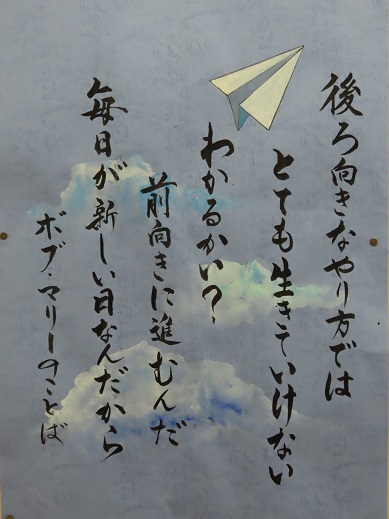 後ろ向きなやり方では
とても生きていけない
わかるかい?
前向きに進むんだ
毎日が新しい日なんだから
ボブ・マリーのことば